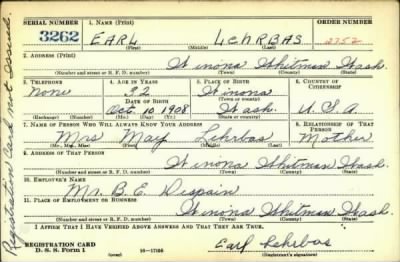 SERIAL NUMBER 1. NAME (Print) ORDER NUMBER
3262 EARL LEHRBAS 2752
(First) (Middle) (Last)
2. ADDRESS (Print)
Winona Whitman Wash.
(Number and street or R. F. D. number) (Town) (County) (State)
3. TELEPHONE 4. AGE IN YEARS 5. PLACE OF BIRTH 6. COUNTRY OF CITIZENSHIP
None 32 Winona
DATE OF BIRTH (Town or county)
Oct 10 1908 Wash. U.S.A
(Exchange) (Number) (Mo.) (Day) (Yr.) (State or country)
7. NAME OF PERSON WHO WILL ALWAYS KNOW YOUR ADDRESS 8. RELATIONSHIP OF THAT PERSON
Mrs May Lehrbas Mother
(Mr., Mrs., Miss) (First) (Middle) (Last)
9. ADDRESS OF THAT PERSON
Winona Whitman Wash.
(Number and street or R. F. D. number) (Town) (County) (State)
10. EMPLOYER'S NAME
Mr. B. E. Despain
11. PLACE OF EMPLOYMENT OR BUSINESS
Winona Whitman Wash.
(Number and street or R. F. D. number) (Town) (County) (State)
I AFFIRM THAT I HAVE VERIFIED ABOVE ANSWERS AND THAT THEY ARE TRUE.
REGISTRATION CARD
D. S. S. Form 1 (over) Earl Lehrbas
(Registrant's signature)
Registration Card not Issued.